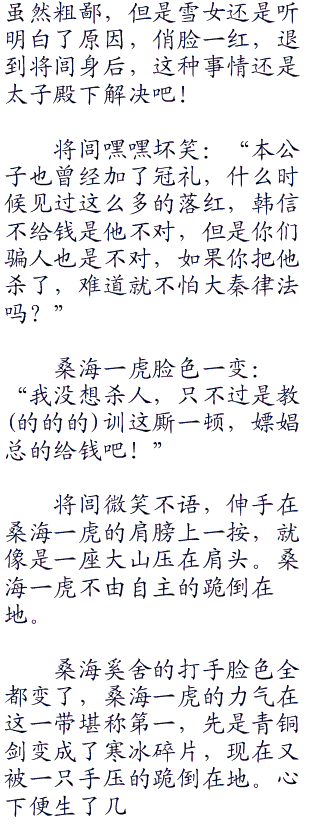 虽然粗鄙，但是雪女还是听
明白了原因，俏脸一红，退
到将闾身后，这种事情还是
太子殿下解决吧！
将闾嘿嘿坏笑：“本公
子也曾经加了冠礼，什么时
候见过这么多的落红，韩信
不给钱是他不对，但是你们
骗人也是不对，如果你把他
杀了，难道就不怕大秦律法
吗？”
桑海一虎脸色一变：
“我没想杀人，只不过是教
(的的的)训这厮一顿，嫖娼
总的给钱吧！”
将闾微笑不语，伸手在
桑海一虎的肩膀上一按，就
像是一座大山压在肩头。桑
海一虎不由自主的跪倒在
地。
桑海奚舍的打手脸色全
都变了，桑海一虎的力气在
这一带堪称第一，先是青铜
剑变成了寒冰碎片，现在又
被一只手压的跪倒在地。心
下便生了几